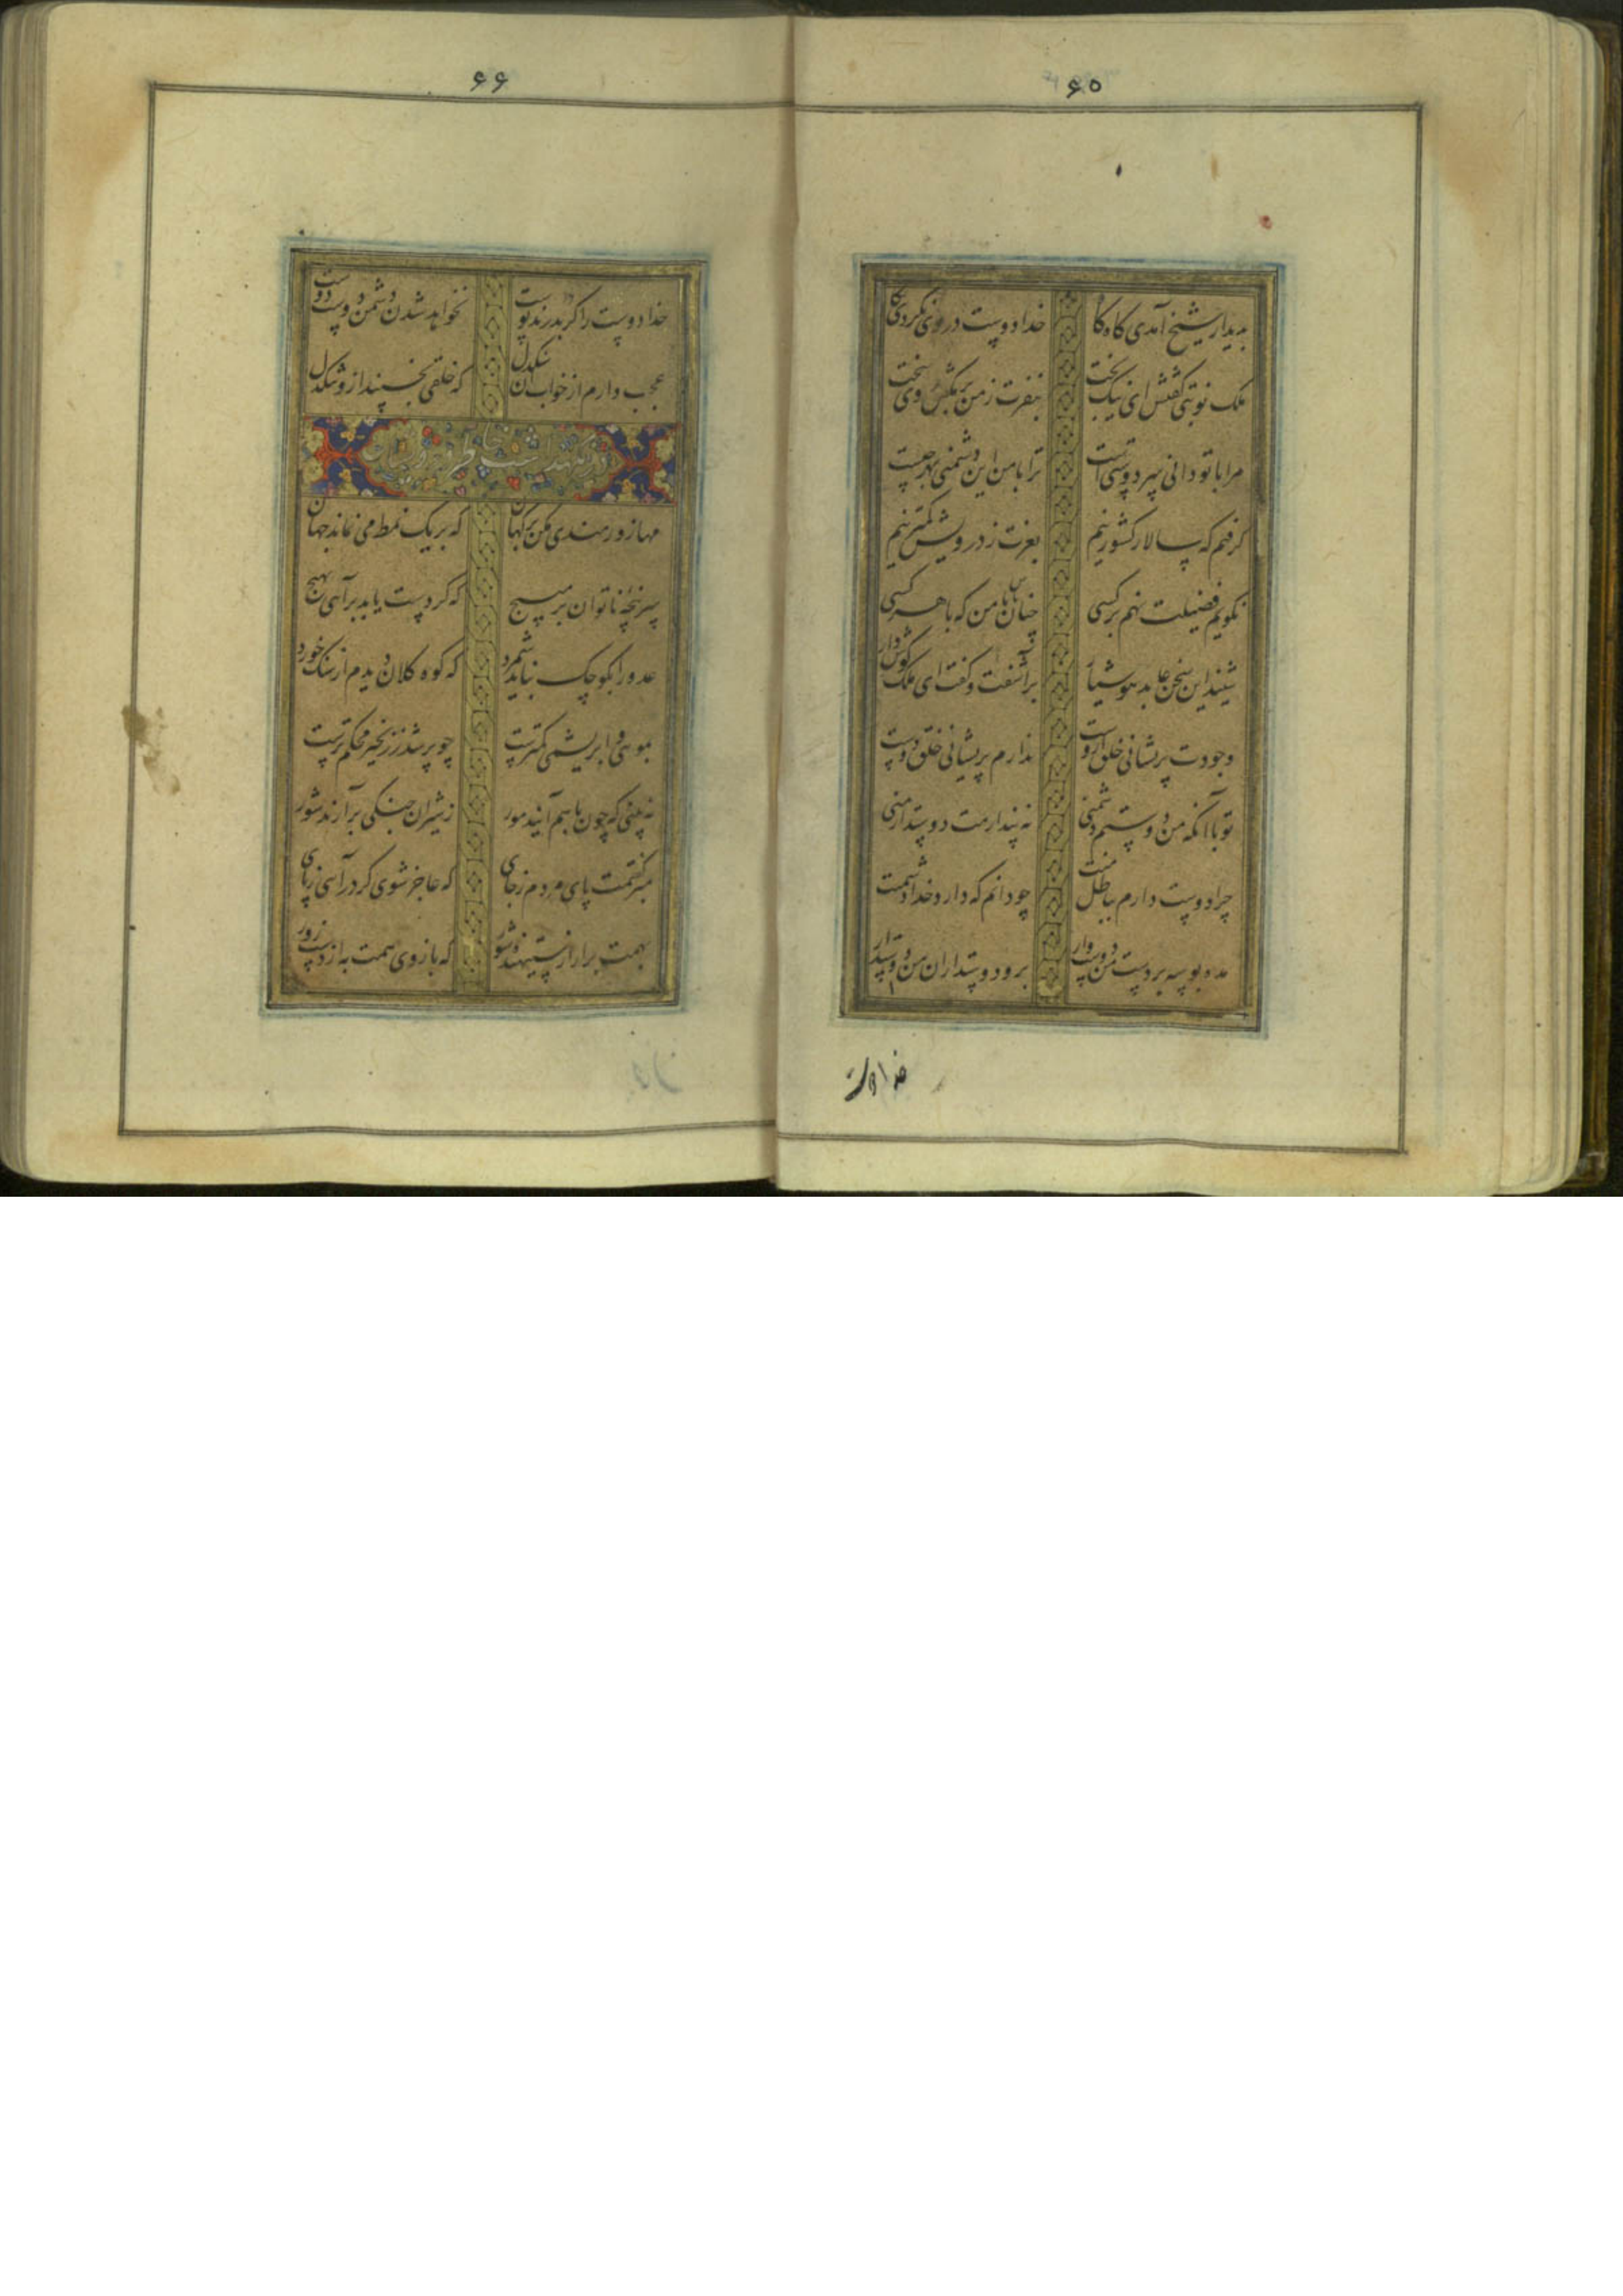 ۶۵
بدیدار شیخ آمدی گاه گاه
خدا دوست در وی نکردی نگاه
ملک نوبتی گفتش ای نیک بخت
بنفرت ز من در مکش روی سخت
مرا با تو دانی سر دوستی است
ترا با من این دشمنی بهر چیست
گرفتم که سالار کشور نیم
بعزت ز درویش کمتر نیم
نگویم فضیلت نهم بر کسی
چنان باش با من که با هر کسی
شنید این سخن عابد هوشیار
برآشفت و گفت ای ملک گوش دار
وجودت پریشانی خلق ازوست
ندارم پریشانی خلق دوست
تو با آنکه من دوستم دشمنی
نه پندارمت دوستدار منی
چرا دوست دارم بباطل منت
چو دانم که دارد خدا دشمنت
مده بوسه بر دست من دوست وار
برو دوستداران من دوست دار
خدا دوست
۶۶
خدا دوست را گر بدرند پوست
نخواهد شدن دشمن دوست دوست
عجب دارم از خواب آن سنگدل
که خلقی بخسپند ازو تنگدل
مها زورمندی مکن بر کهان
که بر یک نمط می نماند جهان
سر پنجه ناتوان بر مپیچ
که گر دست یابد برآیی بهیچ
عدو را بکوچک نباید شمرد
که کوه کلان دیدم از سنگ خورد
موئی و ابریشمی کمترست
چو پر شد ز زنجیر محکم ترست
نه بینی که چون با هم آیند مور
ز شیران جنگی برآرند شور
مبر گفتمت پای مردم ز جای
که عاجز شوی گر درآیی ز پای
بهمت برآر از ستیهنده شور
که بازوی همت به از دست زور